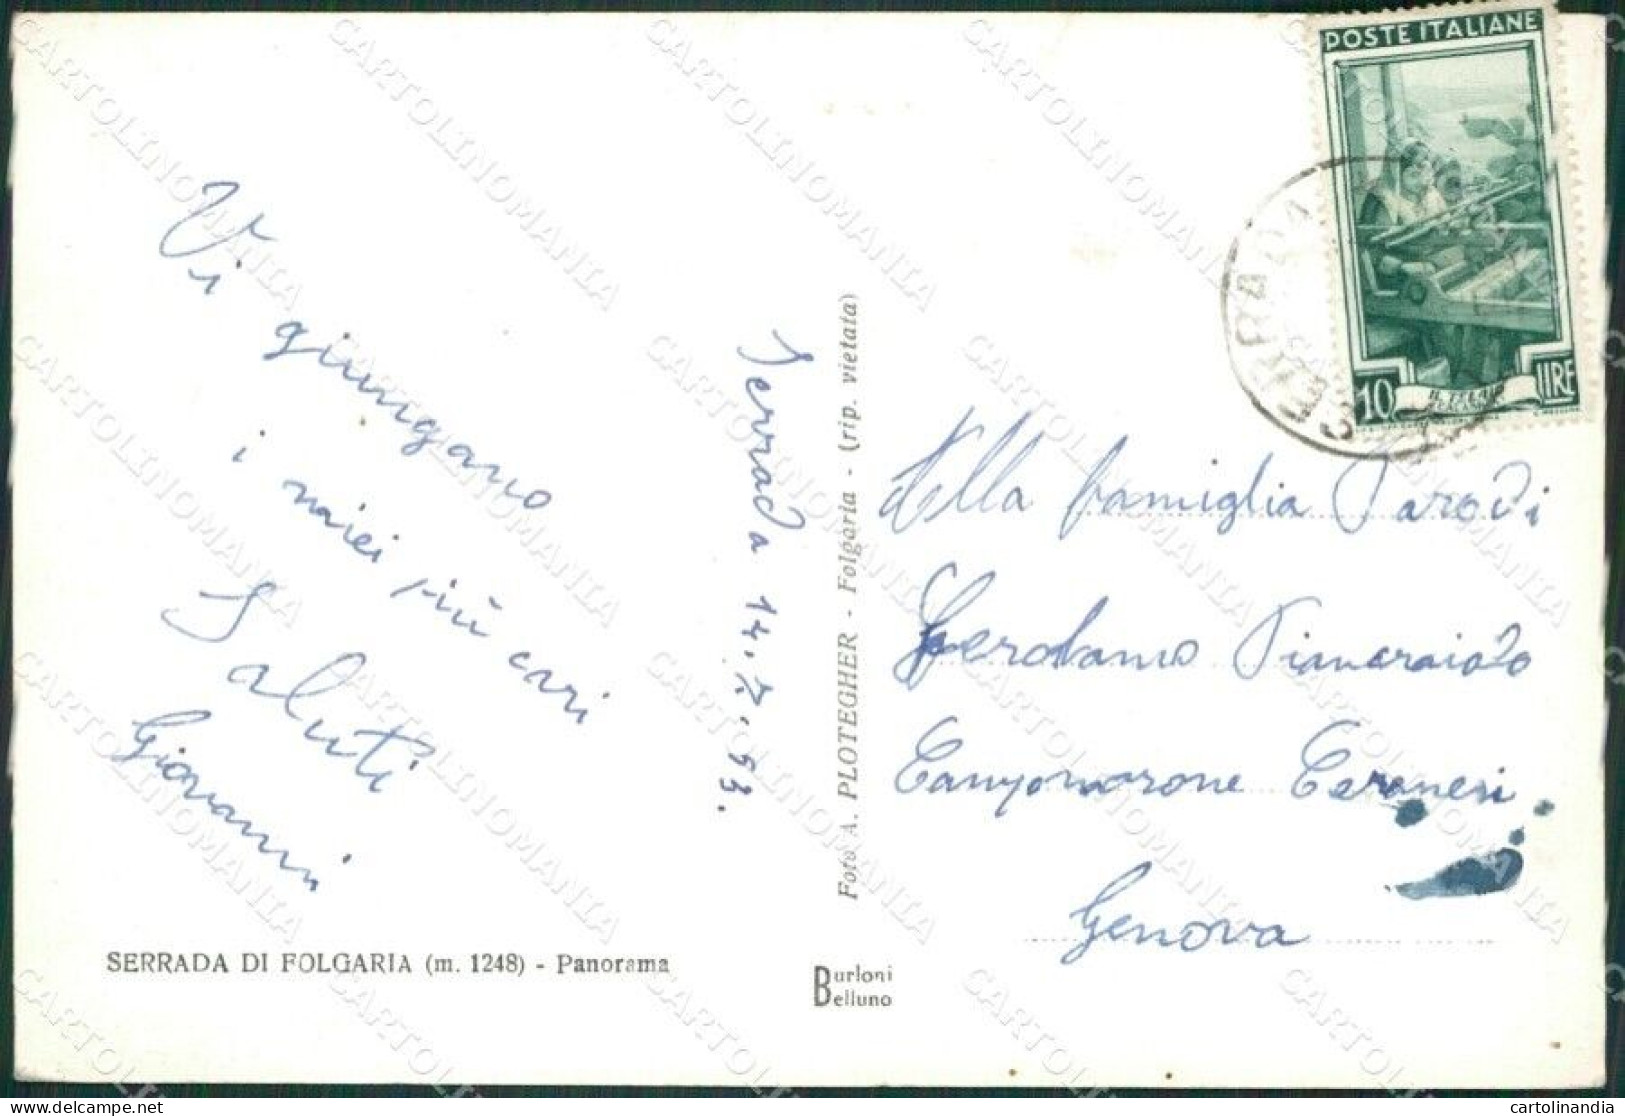 POSTE ITALIANE
10 LIRE
SERRADA
Vi
giungano
i miei più cari
Saluti
Giovanni
Serrada 14.7.53.
Foto A. PLOTEGHER - Folgaria - (rip. vietata)
Alla famiglia Parodi
Campomorone Ceranesi
Genova
SERRADA DI FOLGARIA (m. 1248) - Panorama
Burloni
Belluno
CARTOLINOMANIA
delcampe.net
cartolinandia